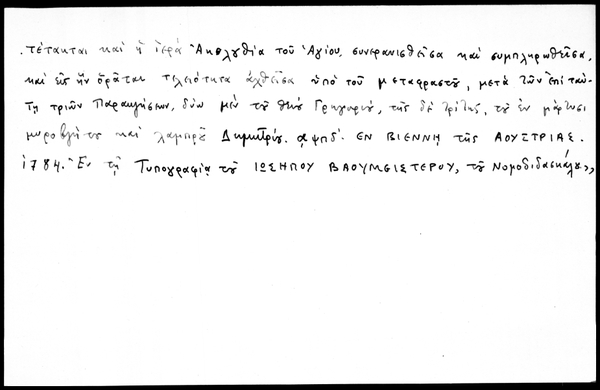 . τέτακται καὶ ἡ ἱερὰ Ἀκολουθία τοῦ Ἁγίου, συνερανισθεῖσα καὶ συμπληρωθεῖσα,
καὶ εἰς ἣν ὁρᾶται τελειότητα ἀχθεῖσα ὑπὸ τοῦ μεταφραστοῦ, μετὰ τῶν ἐπὶ ταύ-
τῃ τριῶν Παρακλήσεων, δύω μὲν τοῦ θείου Γρηγορίου, τῆς δὲ τρίτης, τοῦ ἐν μάρτυσι
μυροβλήτου καὶ λαμπροῦ Δημητρίου. αψπδ΄. ΕΝ ΒΙΕΝΝΗ τῆς ΑΟΥΣΤΡΙΑΣ.
1784. Ἐν τῇ Τυπογραφίᾳ τοῦ ΙΩΣΗΠΟΥ ΒΑΟΥΜΕΙΣΤΕΡΟΥ, τοῦ Νομοδιδασκάλου,,